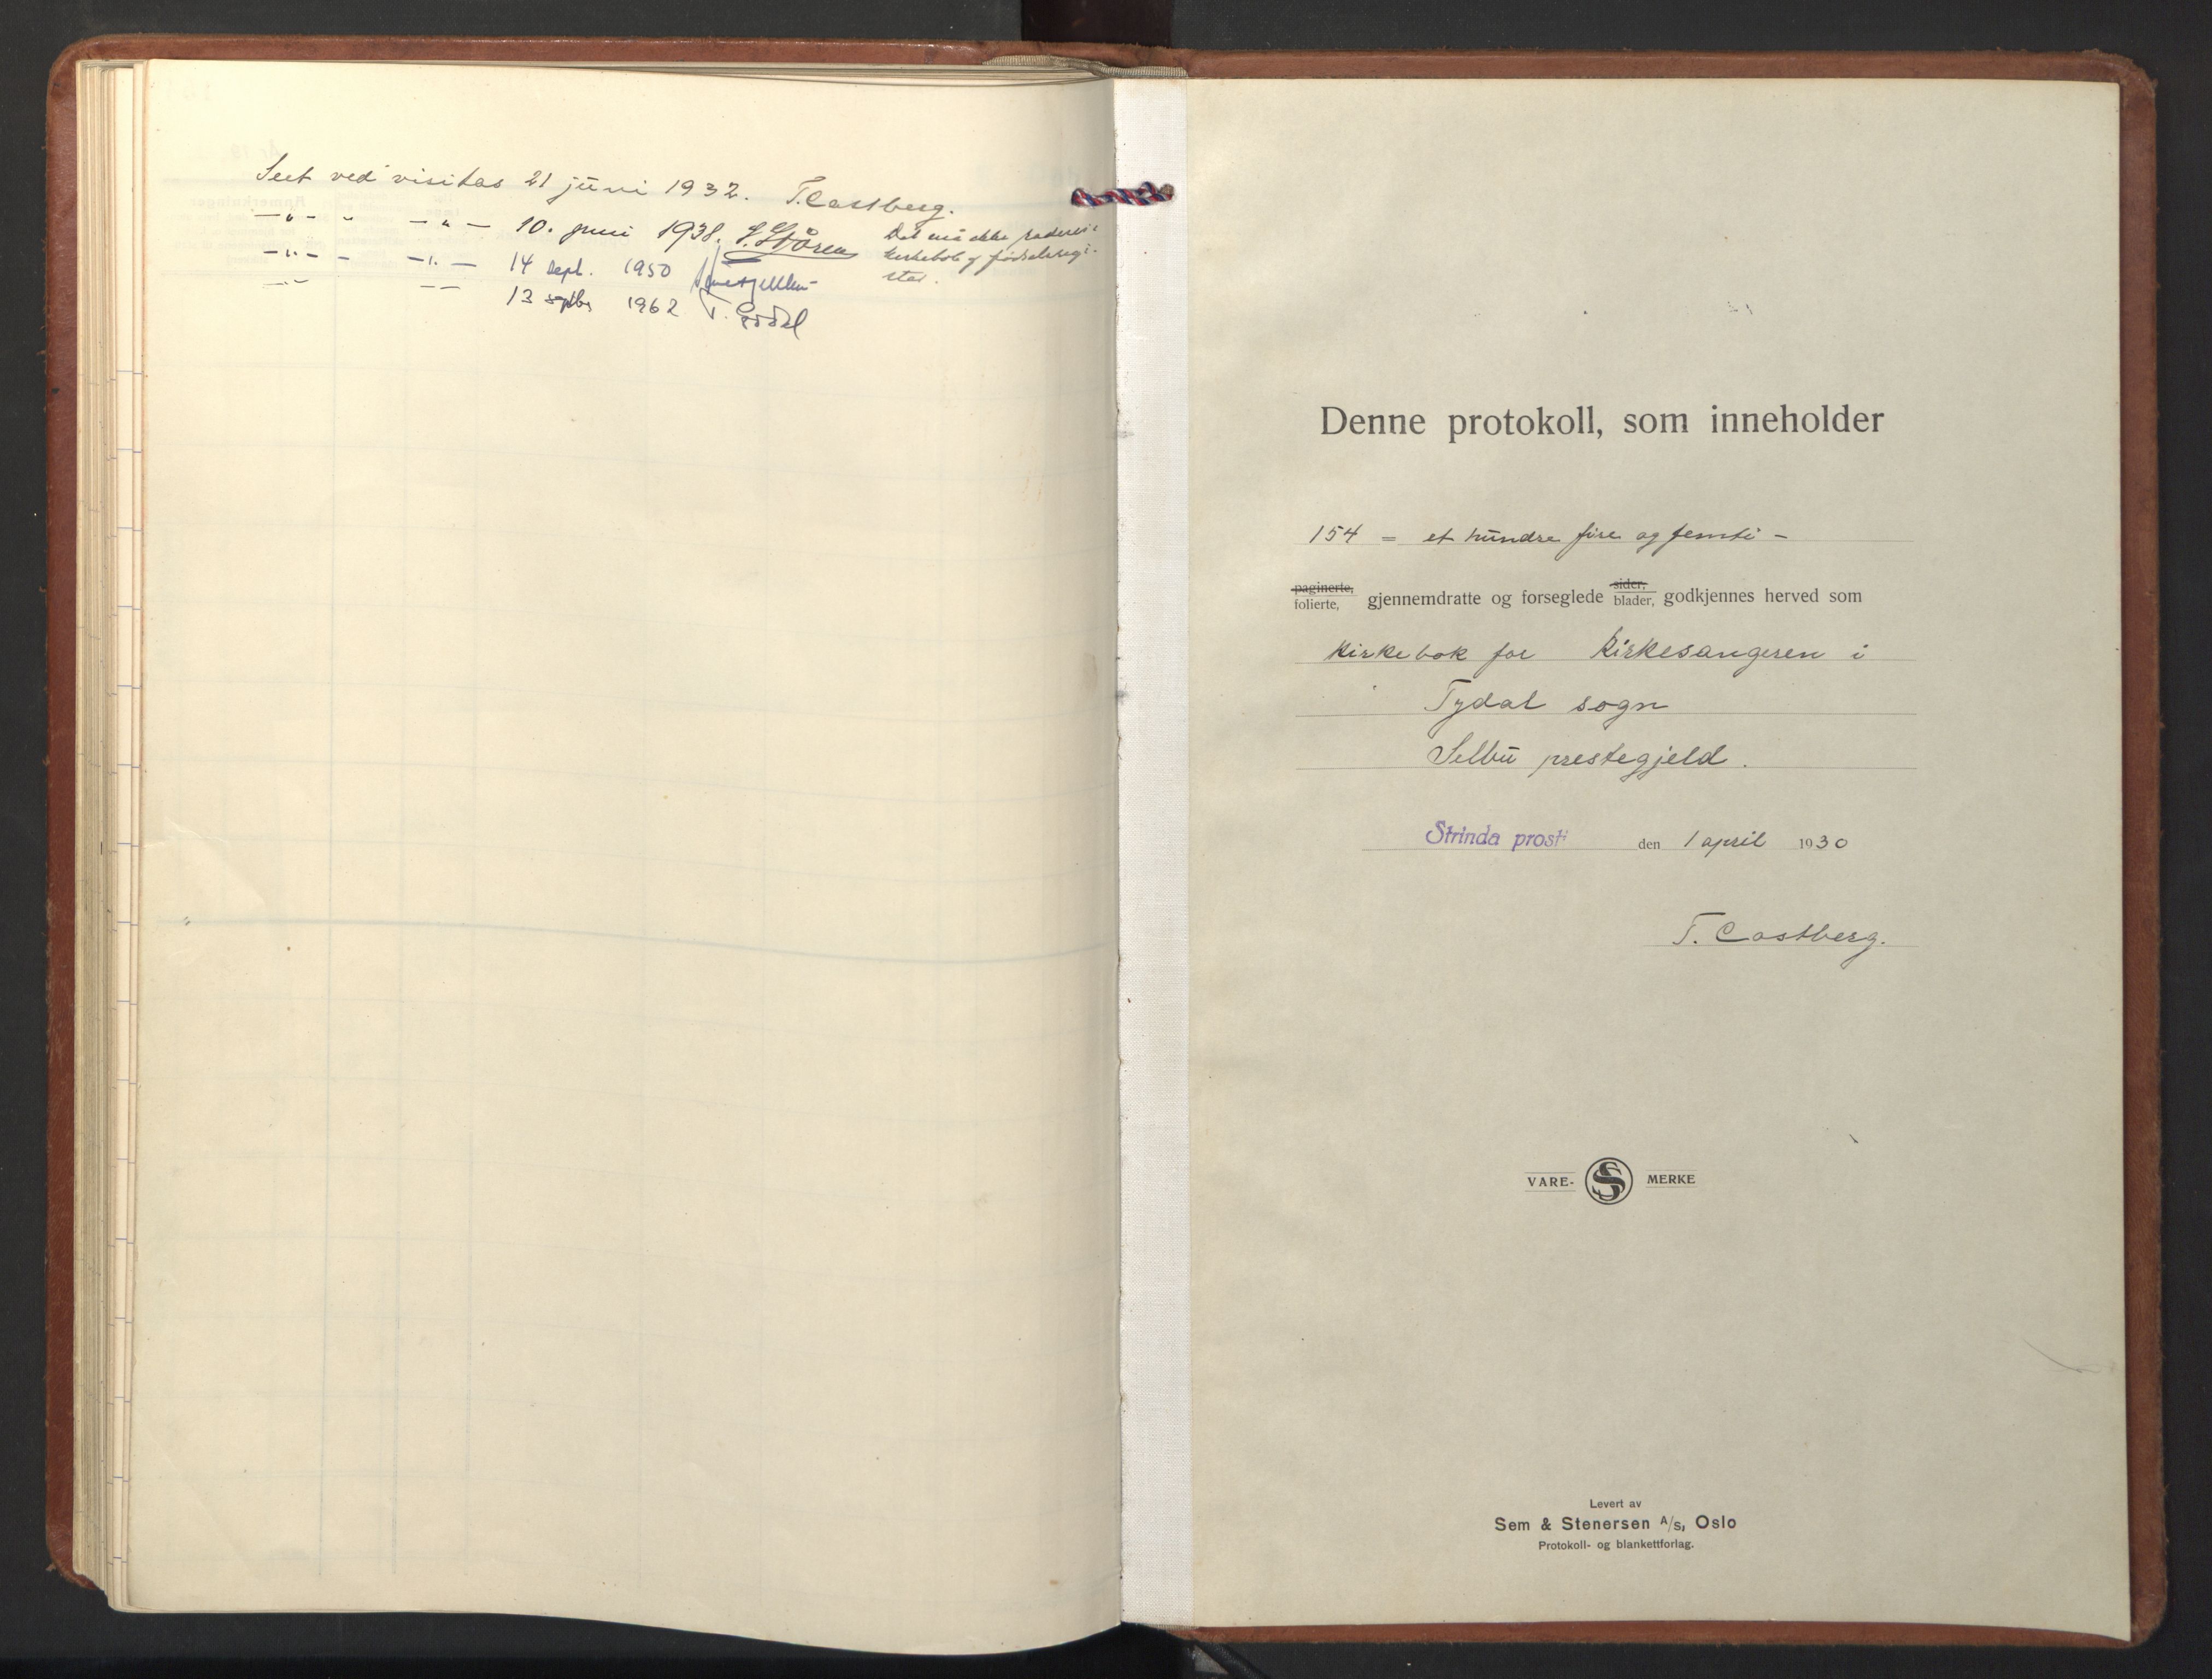 Seet ved visitas 21 juni 1932. T. Castberg.
—„— „ —„— 10. juni 1938. J. Støren
Det må ikke raderes i
kirkebok og fødselsregi-
ster.
—„— - —„— 14 sept. 1950
—„— —„— 13 septbr 1962 T. Godal
Denne protokoll, som inneholder
154 = et hundre fire og femti -
paginerte, sider,
folierte, gjennemdratte og forseglede blader, godkjennes herved som
Kirkebok for Kirkesangeren i
Tydal sogn
Selbu prestegjeld.
Strinda prosti den 1 april 1930
T. Castberg.
VARE- S MERKE
Levert av
Sem & Stenersen A/s, Oslo
Protokoll- og blankettforlag.